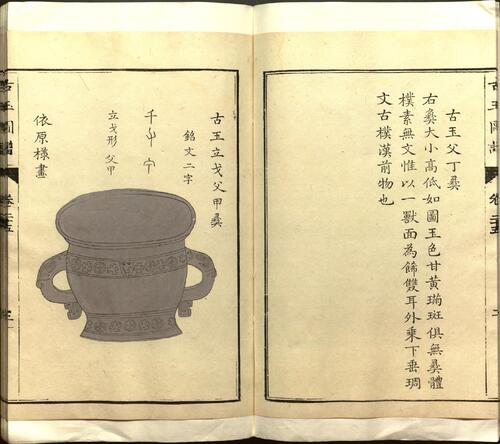 古玉父丁彝
右彝大小高低如圖玉色甘黃瑞斑俱無彝體
樸素無文惟以一獸面為餙雙耳外乘下垂琱
文古樸漢前物也
古玉立戈父甲彝
銘文二字
立戈形 父甲
依原樣畫
古玉圖譜